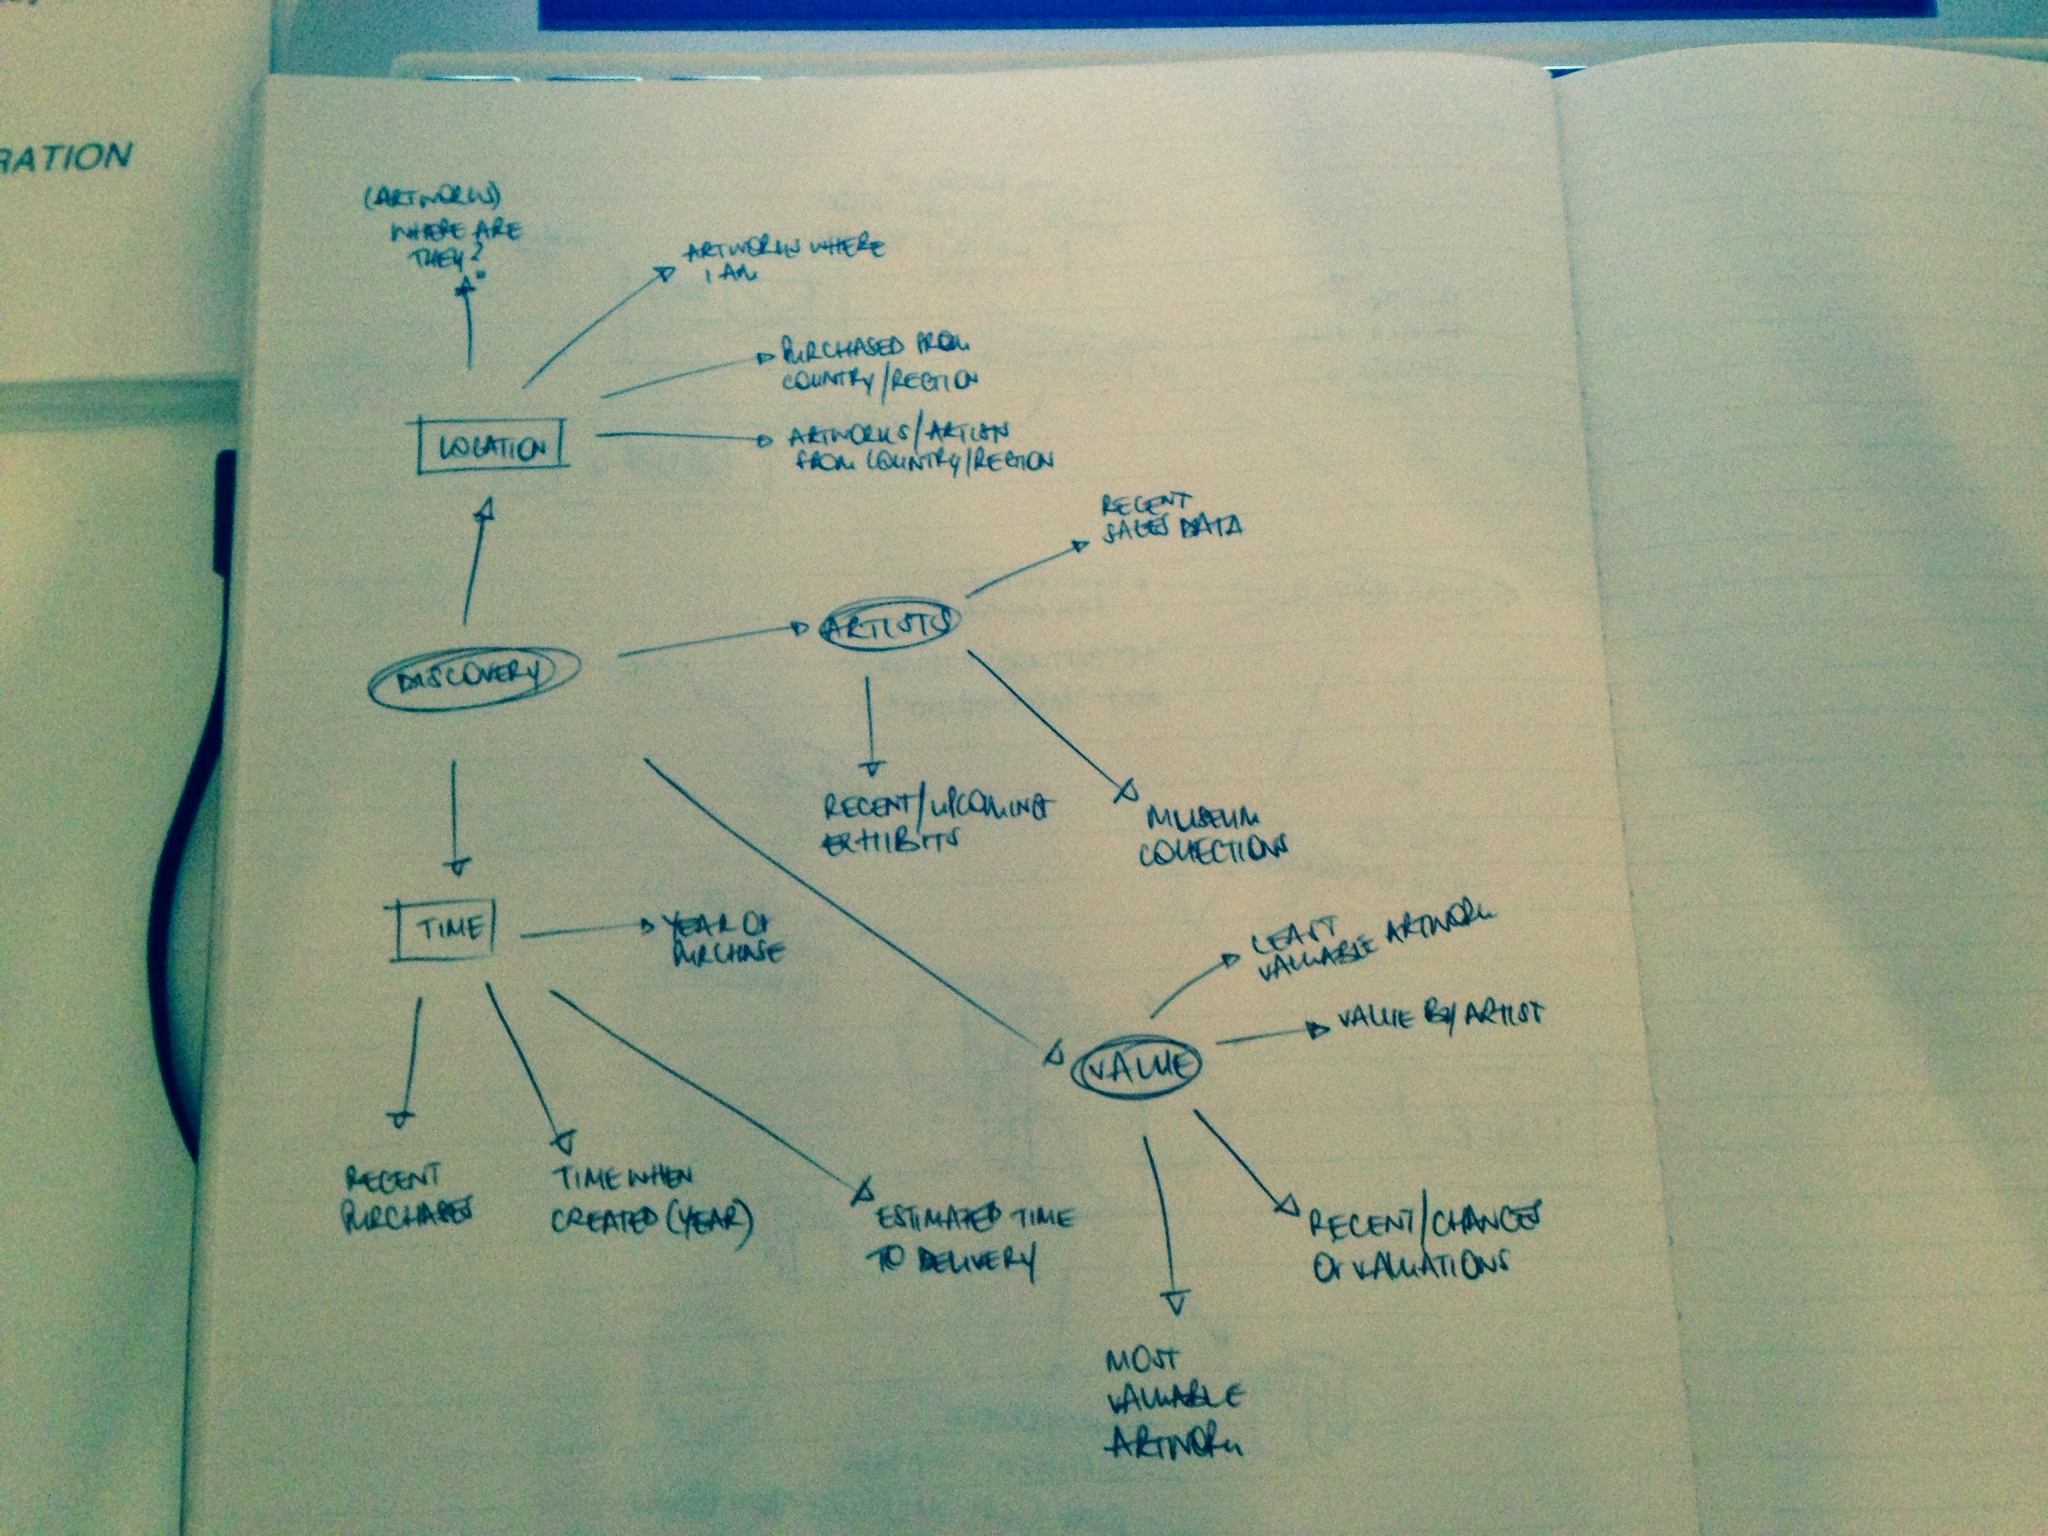 RATION
(ARTWORKS)
WHERE ARE
THEY?
ARTWORKS WHERE
I AM
PURCHASED FROM
COUNTRY/REGION
LOCATION
ARTWORKS/ARTISTS
FROM COUNTRY/REGION
RECENT
SALES DATA
ARTISTS
DISCOVERY
RECENT/UPCOMING
EXHIBITS
MUSEUM
COLLECTIONS
TIME
YEAR OF
PURCHASE
LEAST
VALUABLE ARTWORK
VALUE BY ARTIST
VALUE
RECENT
PURCHASES
TIME WHEN
CREATED (YEAR)
ESTIMATED TIME
TO DELIVERY
RECENT/CHANGES
OF VALUATIONS
MOST
VALUABLE
ARTWORK